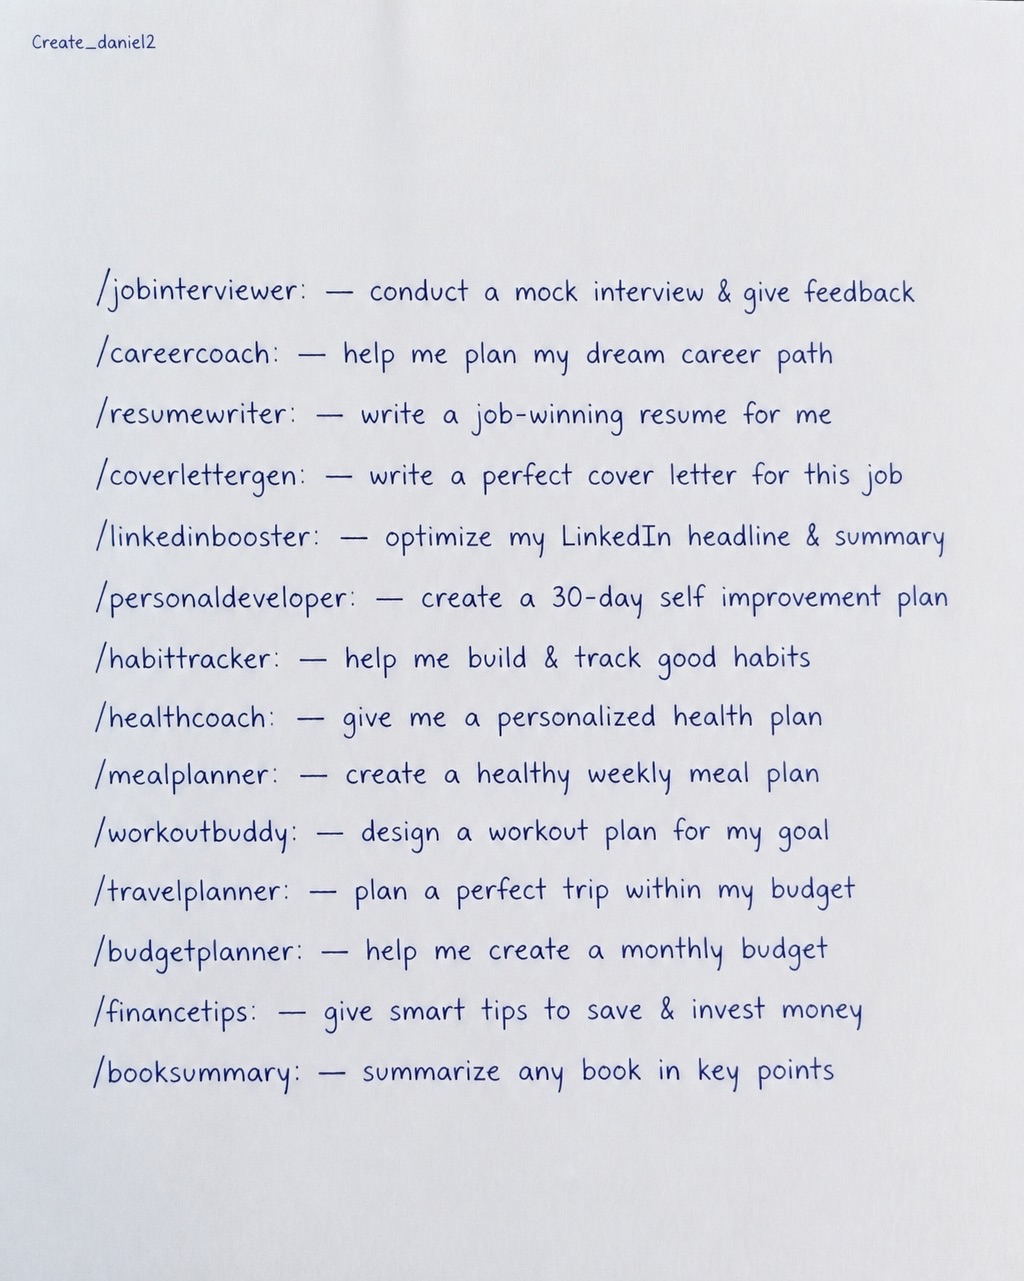 Create_daniel2
/jobinterviewer: — conduct a mock interview & give feedback
/careercoach: — help me plan my dream career path
/resumewriter: — write a job-winning resume for me
/coverlettergen: — write a perfect cover letter for this job
/linkedinbooster: — optimize my LinkedIn headline & summary
/personaldeveloper: — create a 30-day self improvement plan
/habittracker: — help me build & track good habits
/healthcoach: — give me a personalized health plan
/mealplanner: — create a healthy weekly meal plan
/workoutbuddy: — design a workout plan for my goal
/travelplanner: — plan a perfect trip within my budget
/budgetplanner: — help me create a monthly budget
/financetips: — give smart tips to save & invest money
/booksummary: — summarize any book in key points